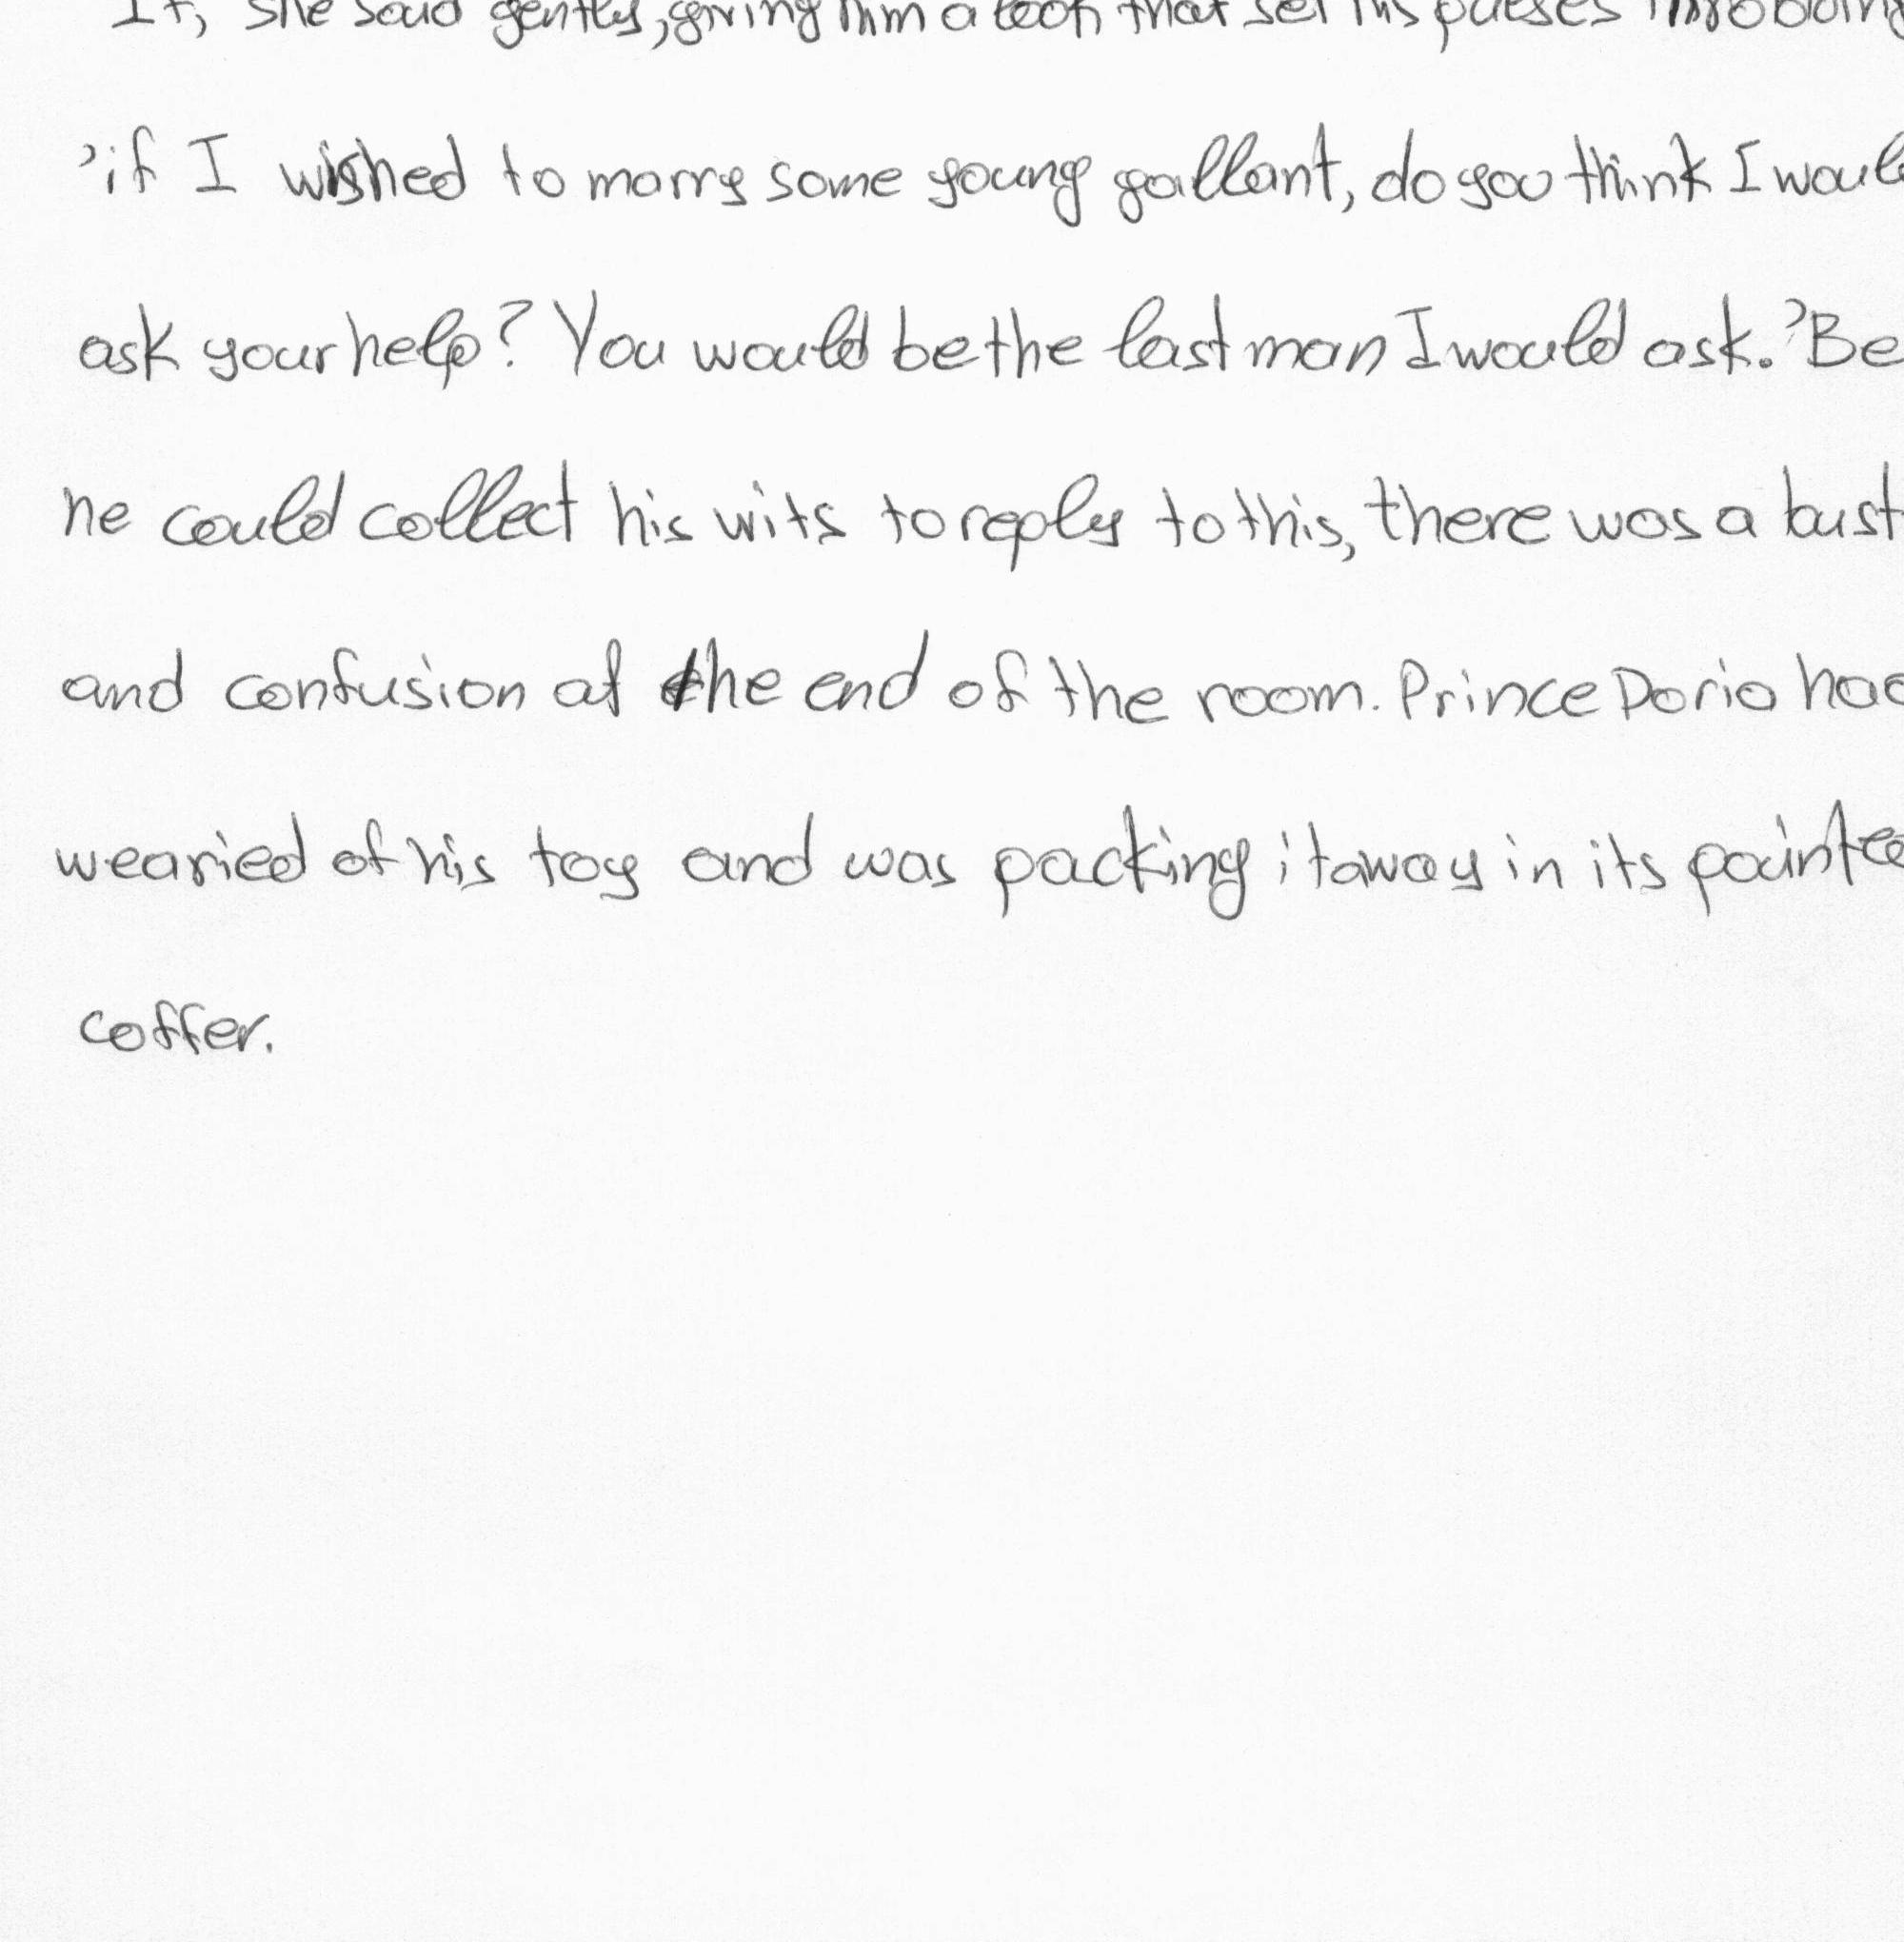 If, she said gently, giving him a look that set his pulses throbbing
'if I wished to marry some young gallant, do you think I woul
ask your help? You would be the last man I would ask.' Be
he could collect his wits to reply to this, there was a bust
and confusion at the end of the room. Prince Dorio had
wearied of his toy and was packing it away in its painte
coffer.